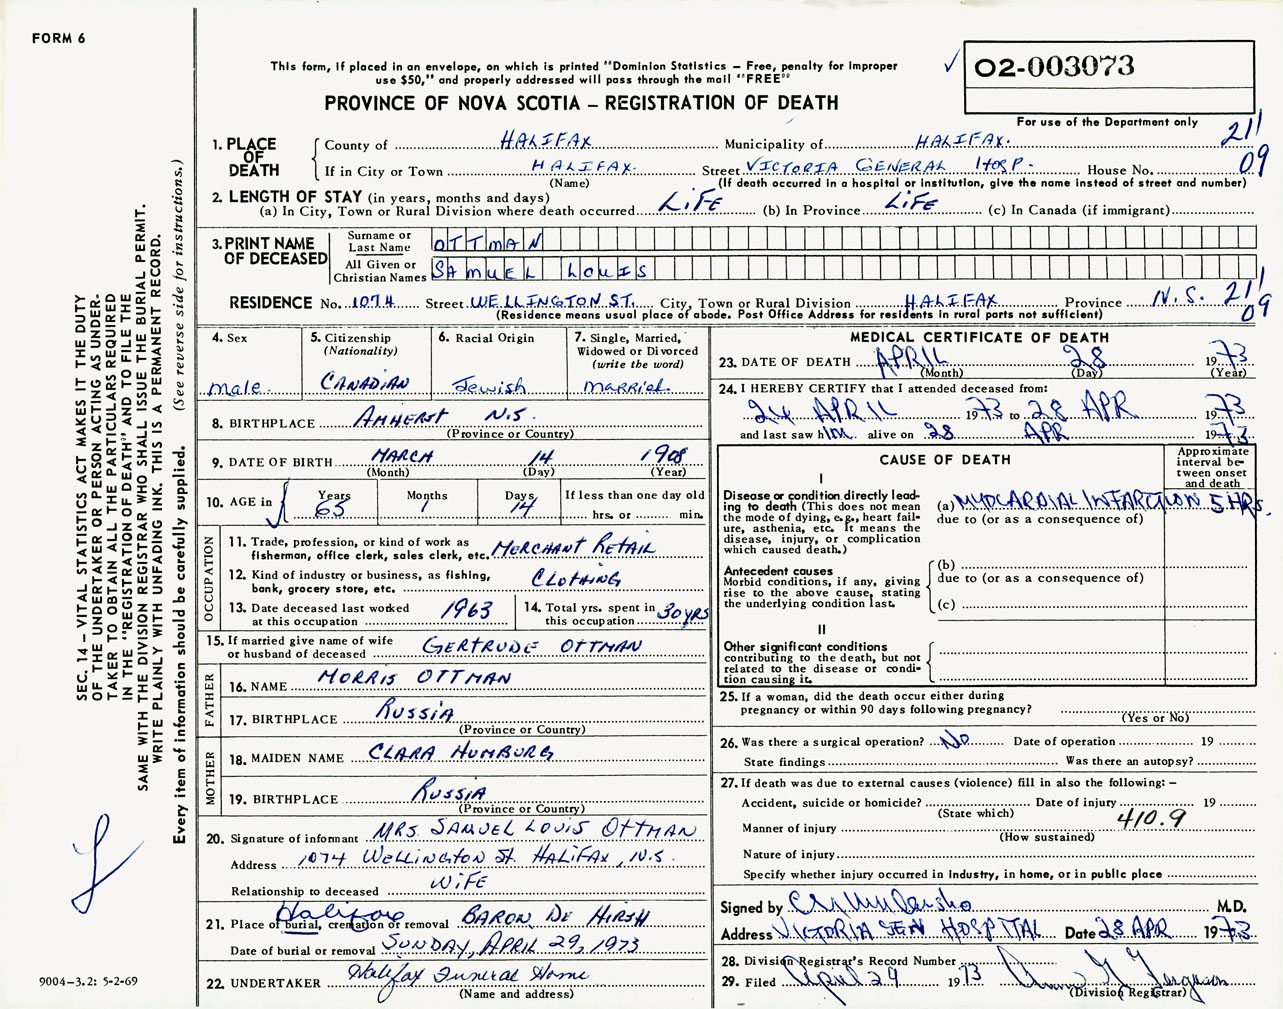 FORM 6
This form, if placed in an envelope, on which is printed "Dominion Statistics – Free, penalty for improper
use $50," and properly addressed will pass through the mail "FREE"
02-003073
PROVINCE OF NOVA SCOTIA – REGISTRATION OF DEATH
For use of the Department only
1. PLACE OF DEATH
County of HALIFAX Municipality of HALIFAX. 211
If in City or Town HALIFAX. Street VICTORIA GENERAL HOSP. House No. 09
(Name) (If death occurred in a hospital or institution, give the name instead of street and number)
2. LENGTH OF STAY (in years, months and days)
(a) In City, Town or Rural Division where death occurred LIFE (b) In Province LIFE (c) In Canada (if immigrant)
3. PRINT NAME OF DECEASED
Surname or Last Name OTTMAN
All Given or Christian Names SAMUEL LOUIS
RESIDENCE No. 1074 Street WELLINGTON ST. City, Town or Rural Division HALIFAX Province N.S. 211
09
(Residence means usual place of abode. Post Office Address for residents in rural parts not sufficient)
4. Sex
male.
5. Citizenship
(Nationality)
CANADIAN
6. Racial Origin
Jewish
7. Single, Married,
Widowed or Divorced
(write the word)
Married.
8. BIRTHPLACE AMHERST N.S.
(Province or Country)
9. DATE OF BIRTH MARCH 14 1908
(Month) (Day) (Year)
10. AGE in Years 65 Months 1 Days 14 If less than one day old
hrs. or min.
OCCUPATION
11. Trade, profession, or kind of work as
fisherman, office clerk, sales clerk, etc. MERCHANT RETAIL
12. Kind of industry or business, as fishing,
bank, grocery store, etc. CLOTHING
13. Date deceased last worked
at this occupation 1963
14. Total yrs. spent in
this occupation 30 YRS
15. If married give name of wife
or husband of deceased GERTRUDE OTTMAN
FATHER
16. NAME MORRIS OTTMAN
17. BIRTHPLACE RUSSIA
(Province or Country)
MOTHER
18. MAIDEN NAME CLARA HUMBURG
19. BIRTHPLACE RUSSIA
(Province or Country)
20. Signature of informant MRS. SAMUEL LOUIS OTTMAN
Address 1074 WELLINGTON ST. HALIFAX, N.S.
Relationship to deceased WIFE
21. Place of burial, cremation or removal Halifax BARON DE HIRSH
Date of burial or removal SUNDAY, APRIL 29, 1973
22. UNDERTAKER Halifax Funeral Home
(Name and address)
MEDICAL CERTIFICATE OF DEATH
23. DATE OF DEATH APRIL 28 1973
(Month) (Day) (Year)
24. I HEREBY CERTIFY that I attended deceased from:
24 APRIL 1973 to 28 APR 1973
and last saw hIM alive on 28 APR 1973
CAUSE OF DEATH
Approximate
interval be-
tween onset
and death
I
Disease or condition directly lead-
ing to death (This does not mean
the mode of dying, e.g., heart fail-
ure, asthenia, etc. It means the
disease, injury, or complication
which caused death.)
(a) MYOCARDIAL INFARCTION 5 HRS.
due to (or as a consequence of)
Antecedent causes
Morbid conditions, if any, giving
rise to the above cause, stating
the underlying condition last.
(b)
due to (or as a consequence of)
(c)
II
Other significant conditions
contributing to the death, but not
related to the disease or condi-
tion causing it.
25. If a woman, did the death occur either during
pregnancy or within 90 days following pregnancy?
(Yes or No)
26. Was there a surgical operation? No Date of operation 19
State findings Was there an autopsy?
27. If death was due to external causes (violence) fill in also the following: –
Accident, suicide or homicide? Date of injury 19
(State which)
Manner of injury 410.9
(How sustained)
Nature of injury
Specify whether injury occurred in industry, in home, or in public place
Signed by M.D.
Address VICTORIA GEN HOSPITAL Date 28 APR 1973
28. Division Registrar's Record Number
29. Filed April 29 1973
(Division Registrar)
SEC. 14 – VITAL STATISTICS ACT MAKES IT THE DUTY
OF THE UNDERTAKER OR PERSON ACTING AS UNDER-
TAKER TO OBTAIN ALL THE PARTICULARS REQUIRED
IN THE "REGISTRATION OF DEATH" AND TO FILE THE
SAME WITH THE DIVISION REGISTRAR WHO SHALL ISSUE THE BURIAL PERMIT.
WRITE PLAINLY WITH UNFADING INK. THIS IS A PERMANENT RECORD.
Every item of information should be carefully supplied. (See reverse side for instructions.)
9004-3.2: 5-2-69